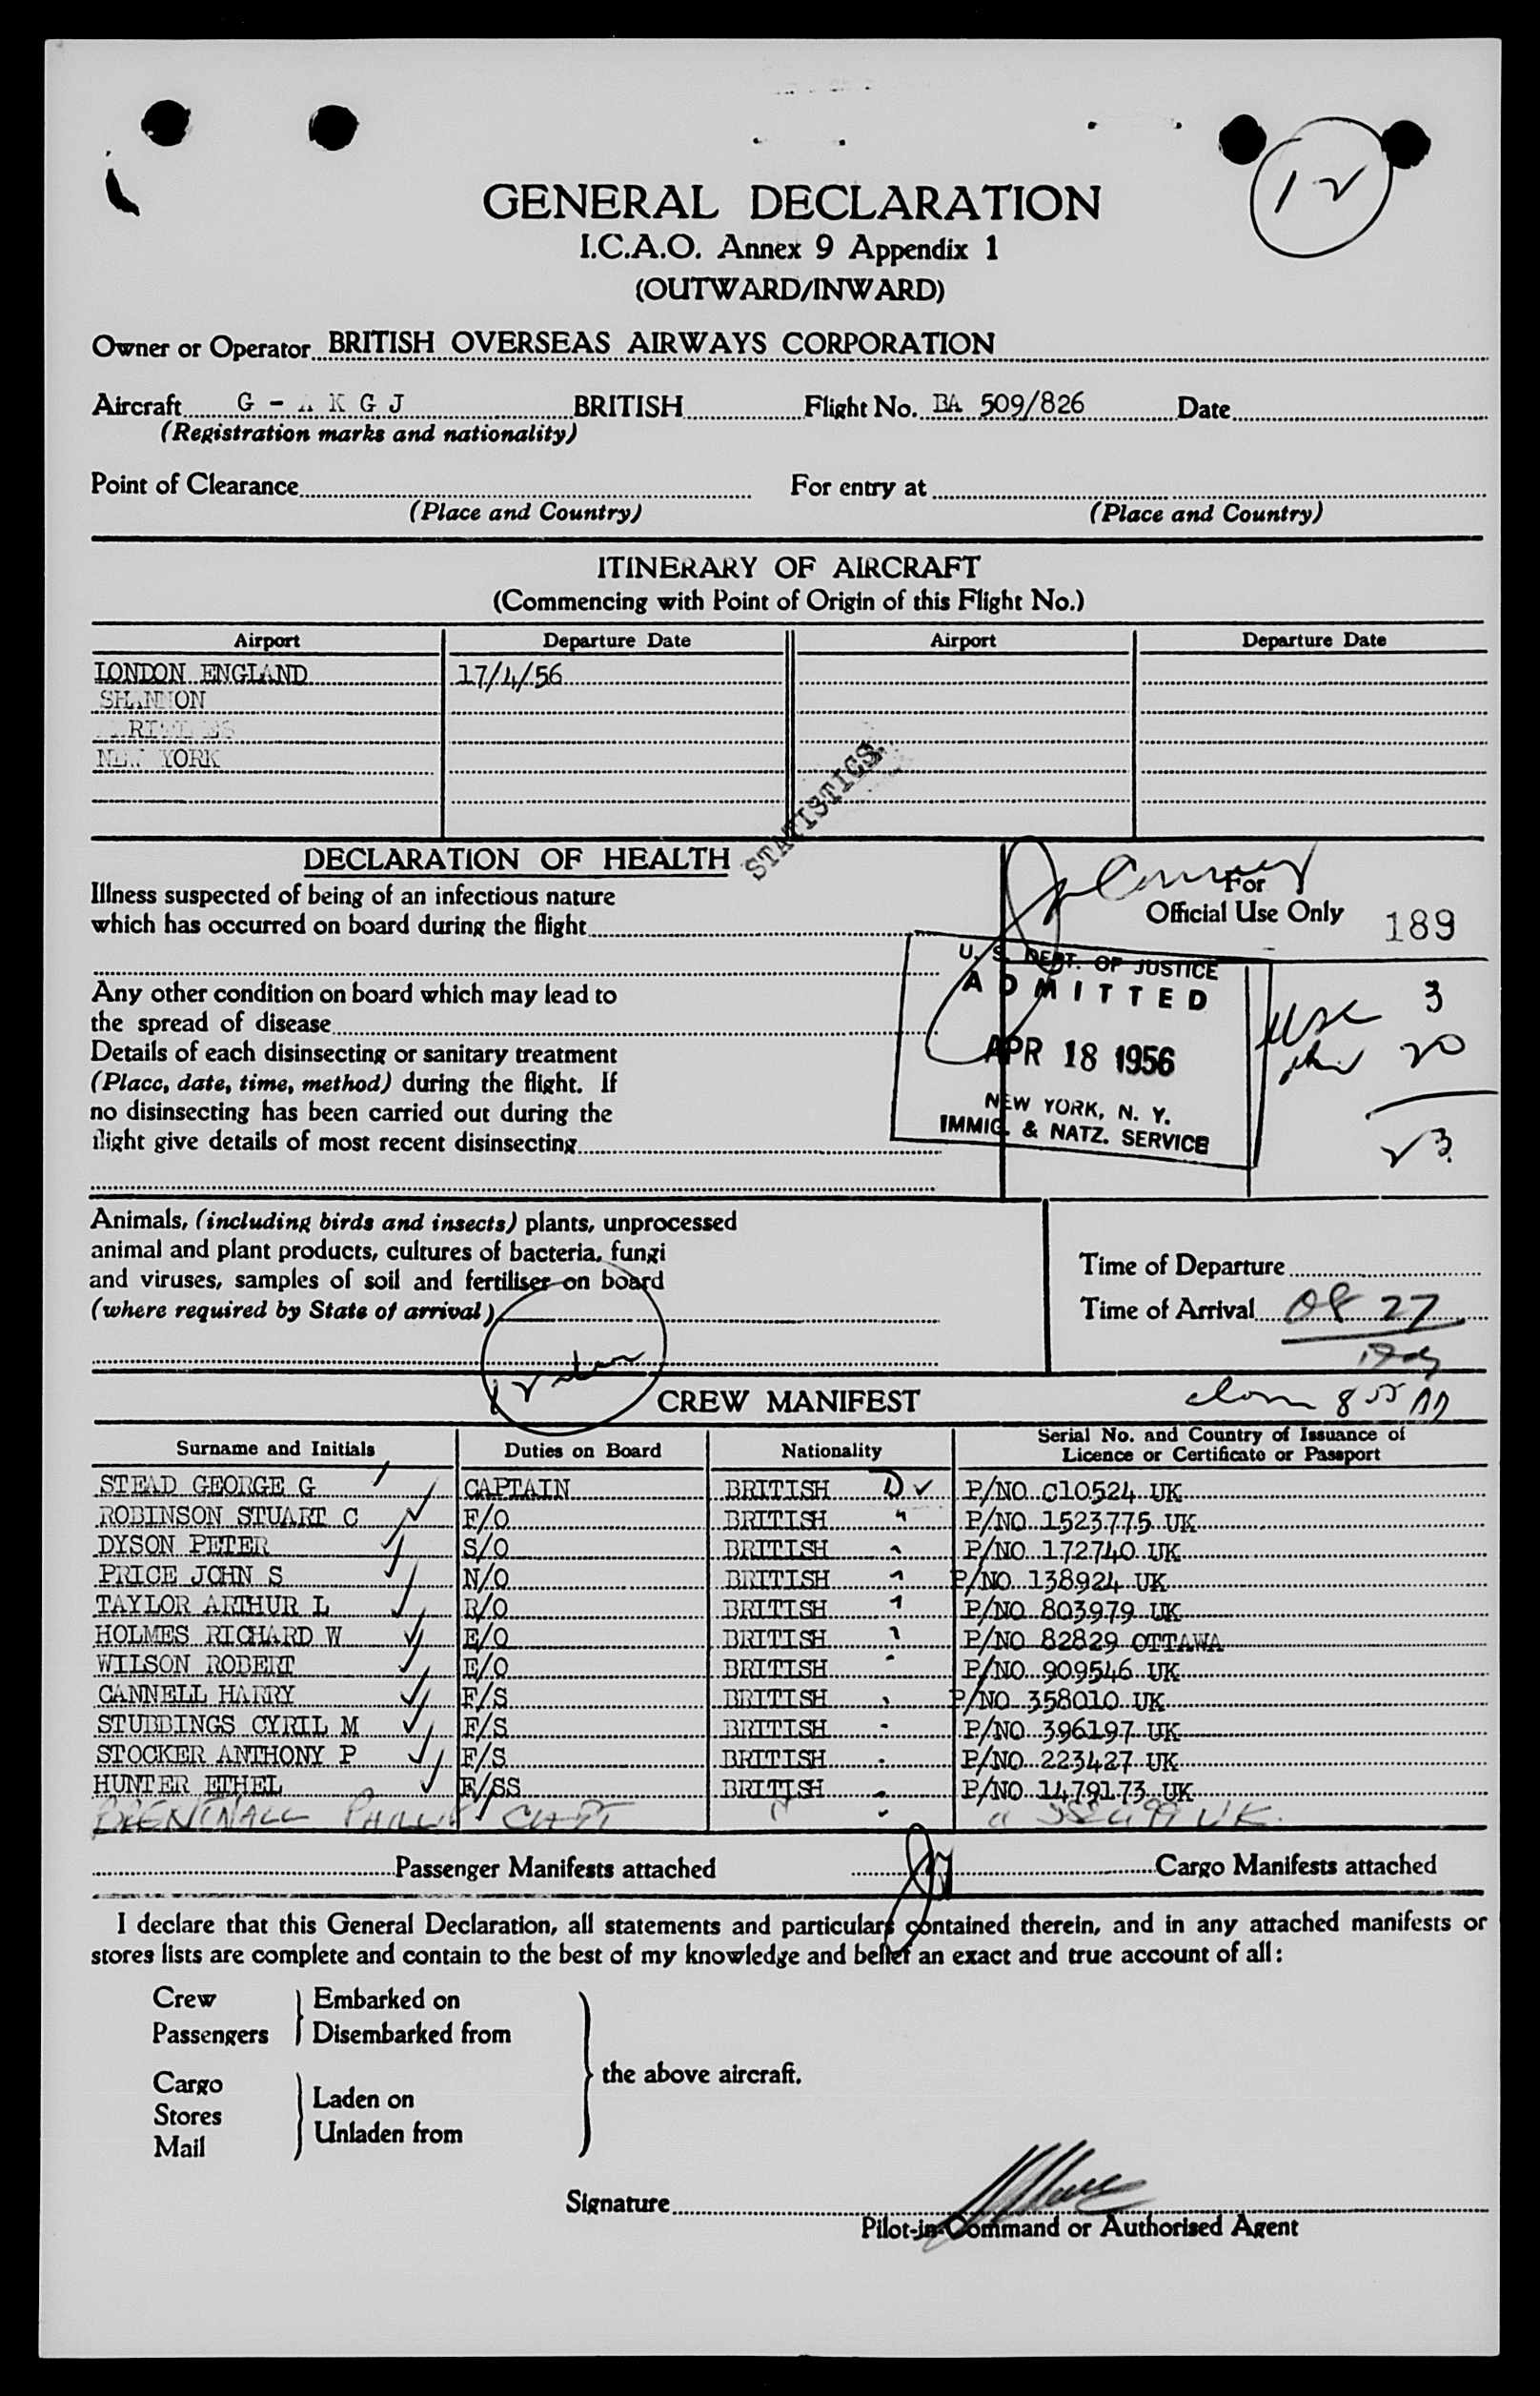 12
GENERAL DECLARATION
I.C.A.O. Annex 9 Appendix 1
(OUTWARD/INWARD)
Owner or Operator BRITISH OVERSEAS AIRWAYS CORPORATION
Aircraft G - A K G J BRITISH Flight No. BA 509/826 Date
(Registration marks and nationality)
Point of Clearance For entry at
(Place and Country) (Place and Country)
ITINERARY OF AIRCRAFT
(Commencing with Point of Origin of this Flight No.)
Airport Departure Date Airport Departure Date
LONDON ENGLAND 17/4/56
SHANNON
NEW YORK
STATISTICS.
DECLARATION OF HEALTH
Illness suspected of being of an infectious nature
which has occurred on board during the flight
For
Official Use Only 189
Any other condition on board which may lead to
the spread of disease
Details of each disinsecting or sanitary treatment
(Place, date, time, method) during the flight. If
no disinsecting has been carried out during the
flight give details of most recent disinsecting
U. S. DEPT. OF JUSTICE
ADMITTED
APR 18 1956
NEW YORK, N. Y.
IMMIG. & NATZ. SERVICE
usc 3
20
23
Animals, (including birds and insects) plants, unprocessed
animal and plant products, cultures of bacteria, fungi
and viruses, samples of soil and fertiliser on board
(where required by State of arrival)
Time of Departure
Time of Arrival 08 27
8 55
CREW MANIFEST
Surname and Initials Duties on Board Nationality Serial No. and Country of Issuance of
Licence or Certificate or Passport
STEAD GEORGE G CAPTAIN BRITISH D ✓ P/NO C10524 UK
ROBINSON STUART C F/O BRITISH " P/NO 1523775 UK
DYSON PETER S/O BRITISH " P/NO 172740 UK
PRICE JOHN S N/O BRITISH " P/NO 138924 UK
TAYLOR ARTHUR L R/O BRITISH " P/NO 803979 UK
HOLMES RICHARD W E/O BRITISH " P/NO 82829 OTTAWA
WILSON ROBERT E/O BRITISH P/NO 909546 UK
CANNELL HARRY F/S BRITISH P/NO 358010 UK
STUBBINGS CYRIL M F/S BRITISH P/NO 396197 UK
STOCKER ANTHONY P F/S BRITISH P/NO 223427 UK
HUNTER ETHEL F/SS BRITISH P/NO 1479173 UK
BRENTNALL PHILLIP CAPT " UK.
Passenger Manifests attached Cargo Manifests attached
I declare that this General Declaration, all statements and particulars contained therein, and in any attached manifests or
stores lists are complete and contain to the best of my knowledge and belief an exact and true account of all:
Crew Embarked on
Passengers Disembarked from
the above aircraft.
Cargo Laden on
Stores
Mail Unladen from
Signature
Pilot-in-Command or Authorised Agent